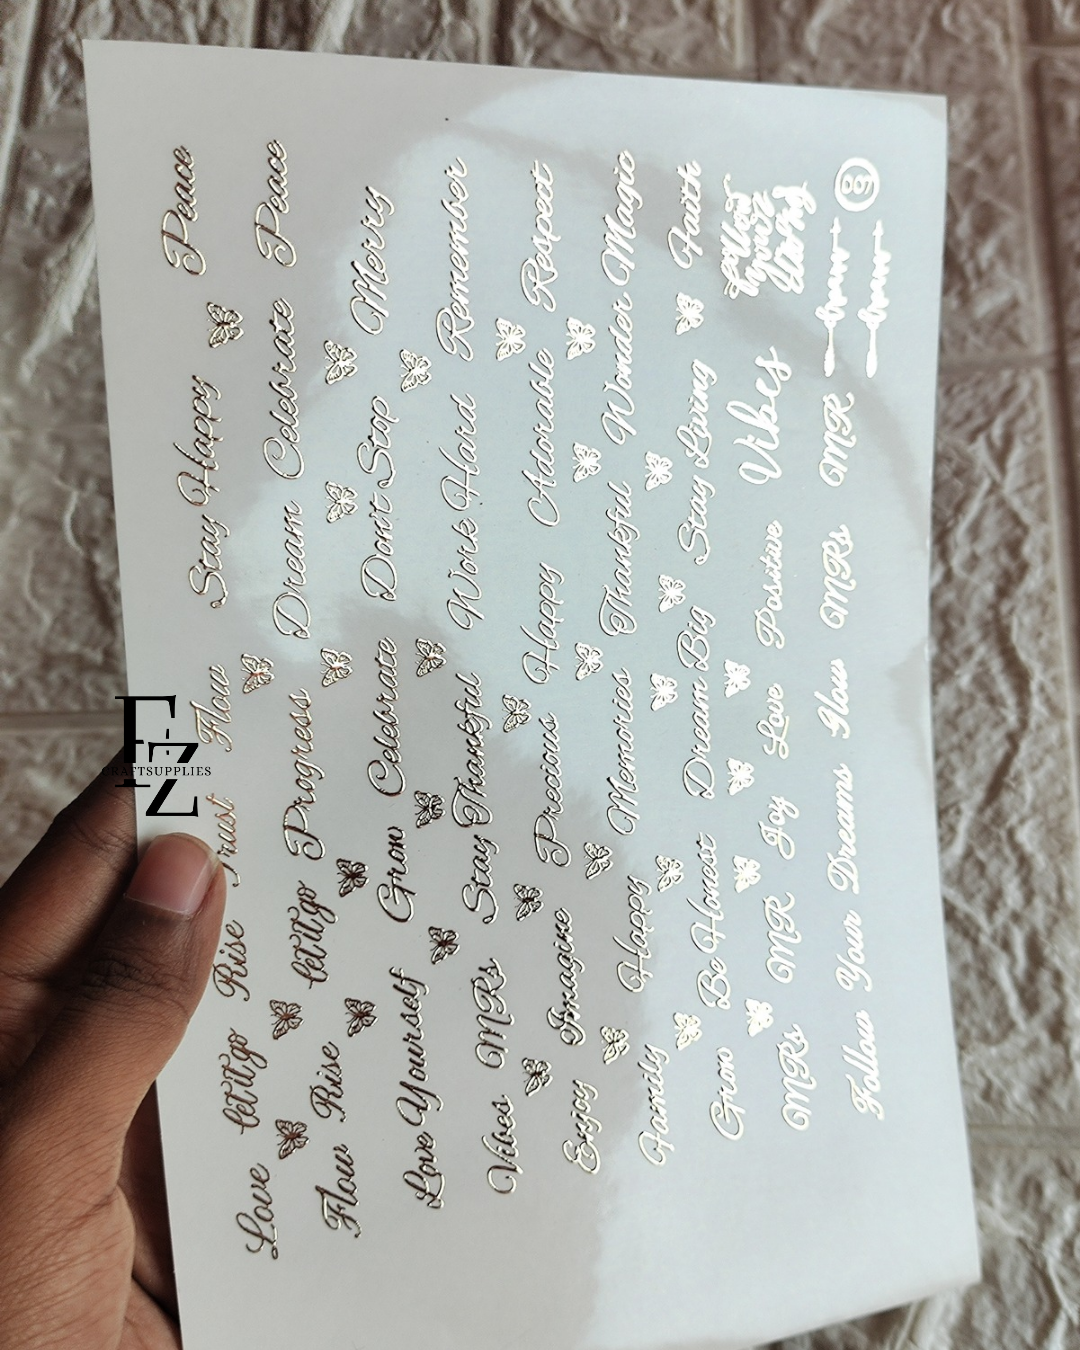 Love let it go Rise Trust Flow Stay Happy Peace
Flow Rise let it go Progress Dream Celebrate Peace
Love Yourself Grow Celebrate Don't Stop Merry
Vibes MRs Stay Thankful Work Hard Remember
Enjoy Imagine Precious Happy Adorable Respect
Family Happy Memories Thankful Wonder Magic
Grow Be Honest Dream Big Stay Living Faith
MRs MR Joy Love Positive Vibes
Follow Your Dreams MRs MR
FZ
CRAFTSUPPLIES